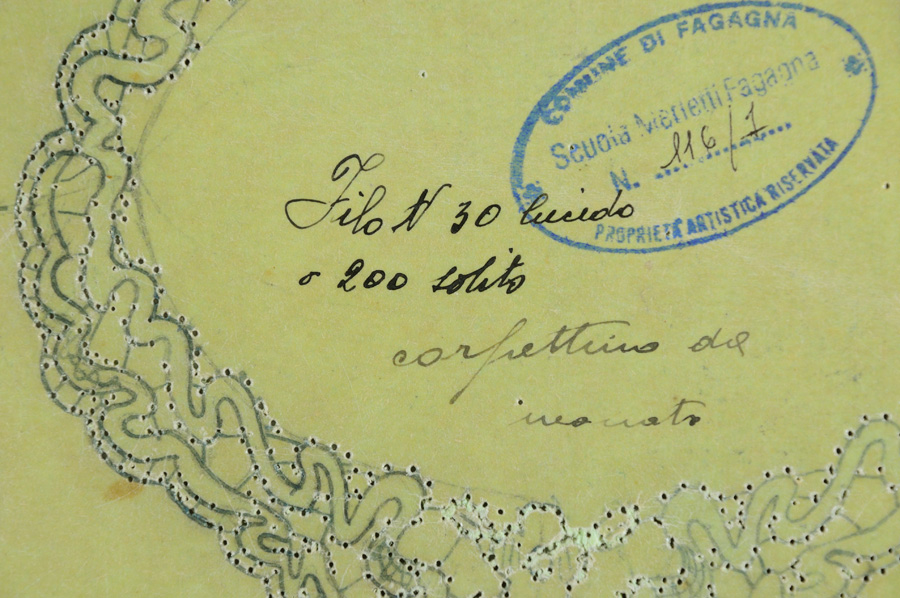 COMUNE DI FAGAGNA
Scuola Merletti Fagagna
N. 116/7
PROPRIETÀ ARTISTICA RISERVATA
Filo N 30 lucido
o 200 solito
corpettino da
neonato